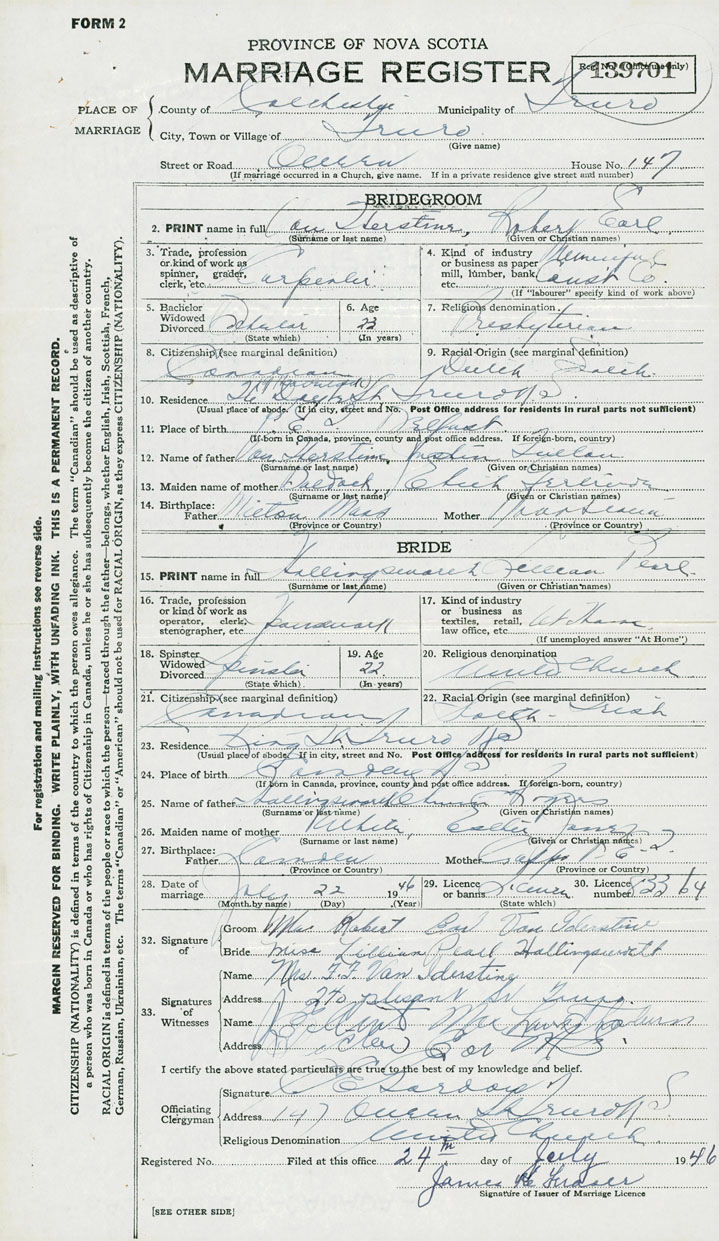 FORM 2
PROVINCE OF NOVA SCOTIA
MARRIAGE REGISTER
Reg. No. (Office use only)
139701
PLACE OF MARRIAGE
County of Colchester Municipality of Truro
City, Town or Village of Truro
(Give name)
Street or Road Queen House No. 147
(If marriage occurred in a Church, give name. If in a private residence give street and number)
BRIDEGROOM
2. PRINT name in full Van Iderstine, Robert Earl
(Surname or last name) (Given or Christian names)
3. Trade, profession or kind of work as spinner, grader, clerk, etc. Carpenter
4. Kind of industry or business as paper mill, lumber, bank, etc. Const Co.
(If "labourer" specify kind of work above)
5. Bachelor Widowed Divorced
(State which)
6. Age 23
(In years)
7. Religious denomination Presbyterian
8. Citizenship (see marginal definition) Canadian
9. Racial Origin (see marginal definition) Dutch Scotch
10. Residence Truro N S
(Usual place of abode. If in city, street and No. Post Office address for residents in rural parts not sufficient)
11. Place of birth P E I Belfast
(If born in Canada, province, county and post office address. If foreign-born, country)
12. Name of father Van Iderstine
(Surname or last name) (Given or Christian names)
13. Maiden name of mother
(Surname or last name) (Given or Christian names)
14. Birthplace: Father Milton Mass Mother Nova Scotia
(Province or Country) (Province or Country)
BRIDE
15. PRINT name in full Hollingsworth Lillian Pearl
(Surname or last name) (Given or Christian names)
16. Trade, profession or kind of work as operator, clerk, stenographer, etc. Housework
17. Kind of industry or business as textiles, retail, law office, etc. At Home
(If unemployed answer "At Home")
18. Spinster Widowed Divorced Spinster
(State which)
19. Age 22
(In years)
20. Religious denomination United Church
21. Citizenship (see marginal definition) Canadian
22. Racial Origin (see marginal definition) Scotch - Irish
23. Residence King St. Truro N S
(Usual place of abode. If in city, street and No. Post Office address for residents in rural parts not sufficient)
24. Place of birth Camden N S
(If born in Canada, province, county and post office address. If foreign-born, country)
25. Name of father Hollingsworth
(Surname or last name) (Given or Christian names)
26. Maiden name of mother White
(Surname or last name) (Given or Christian names)
27. Birthplace: Father Camden Mother
(Province or Country) (Province or Country)
28. Date of marriage July 22 1946
(Month by name) (Day) (Year)
29. Licence or banns Licence
(State which)
30. Licence number
32. Signature of
Groom Mr. Robert Earl Van Iderstine
Bride Miss Lillian Pearl Hollingsworth
33. Signatures of Witnesses
Name Mrs. F. F. Van Iderstine
Address 270 plesant st Truro.
Name
Address
I certify the above stated particulars are true to the best of my knowledge and belief.
Officiating Clergyman
Signature Gordon
Address 147 Queen St Truro N S
Religious Denomination United Church
Registered No. Filed at this office 24th day of July 1946
James Fraser
Signature of Issuer of Marriage Licence
[SEE OTHER SIDE]
For registration and mailing instructions see reverse side.
MARGIN RESERVED FOR BINDING. WRITE PLAINLY, WITH UNFADING INK. THIS IS A PERMANENT RECORD.
CITIZENSHIP (NATIONALITY) is defined in terms of the country to which the person owes allegiance. The term "Canadian" should be used as descriptive of
a person who was born in Canada or who has rights of Citizenship in Canada, unless he or she has subsequently become the citizen of another country.
RACIAL ORIGIN is defined in terms of the people or race to which the person—traced through the father—belongs, whether English, Irish, Scottish, French,
German, Russian, Ukrainian, etc. The terms "Canadian" or "American" should not be used for RACIAL ORIGIN, as they express CITIZENSHIP (NATIONALITY).